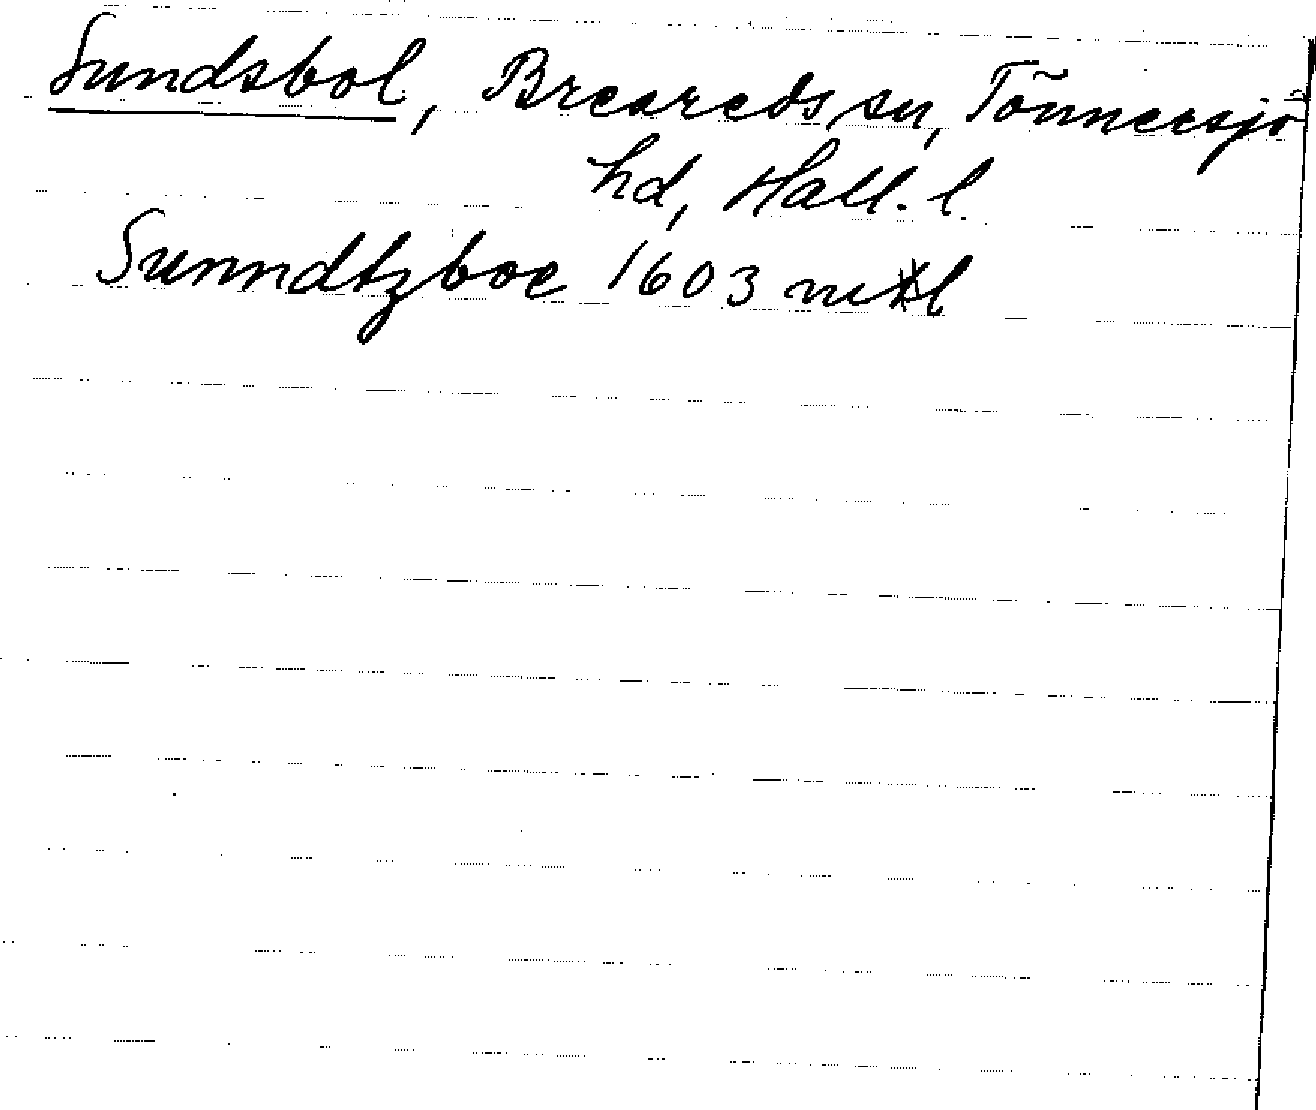 Sundsbol, Breareds sn, Tönnersjö
hd, Hall. l.
Sunndtzboe 1603 mtl